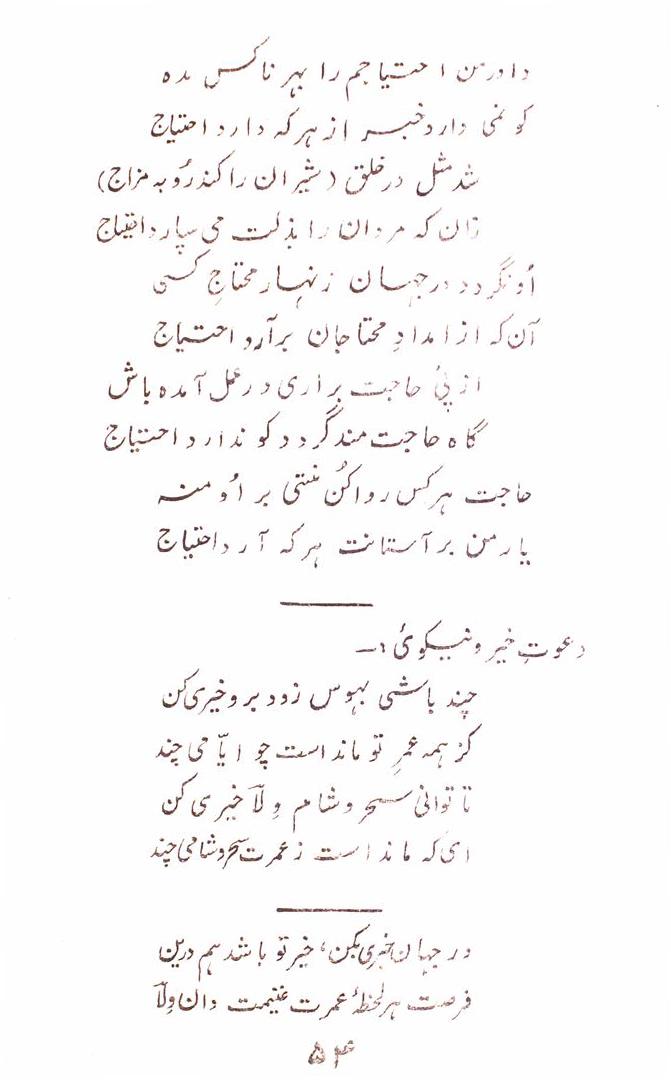 داور من احتیاجم را بہر ناکس مدہ
کو نمی دارد خبر از ہر کہ دارد احتیاج
شد مثل در خلق (شیران را کند رُو بہ مزاج)
زان کہ مردان را بذلت می سپارد احتیاج
اُو نگردد در جہان زنہار محتاجِ کسی
آن کہ از امدادِ محتاجان برآرد احتیاج
از پیٔ حاجت براری در عمل آمدہ باش
گاہ حاجت مند گردد کو ندارد احتیاج
حاجت ہر کس روا کُن منتی بر اُو منہ
یار من بر آستانت ہر کہ آرد احتیاج
دعوتِ خیر و نیکوئ :۔
چند باشی بہوس زود برو خیری کن
کز ہمہ عمرِ تو ماند است چو ایّامی چند
تا توانی سحر و شام وِلاؔ خیری کن
ای کہ ماند است ز عمرت سحر و شامی چند
در جہان خیری بکن، خیر تو باشد ہم درین
فرصت ہر لحظۂ عمرت غنیمت دان وِلاؔ
۵۴